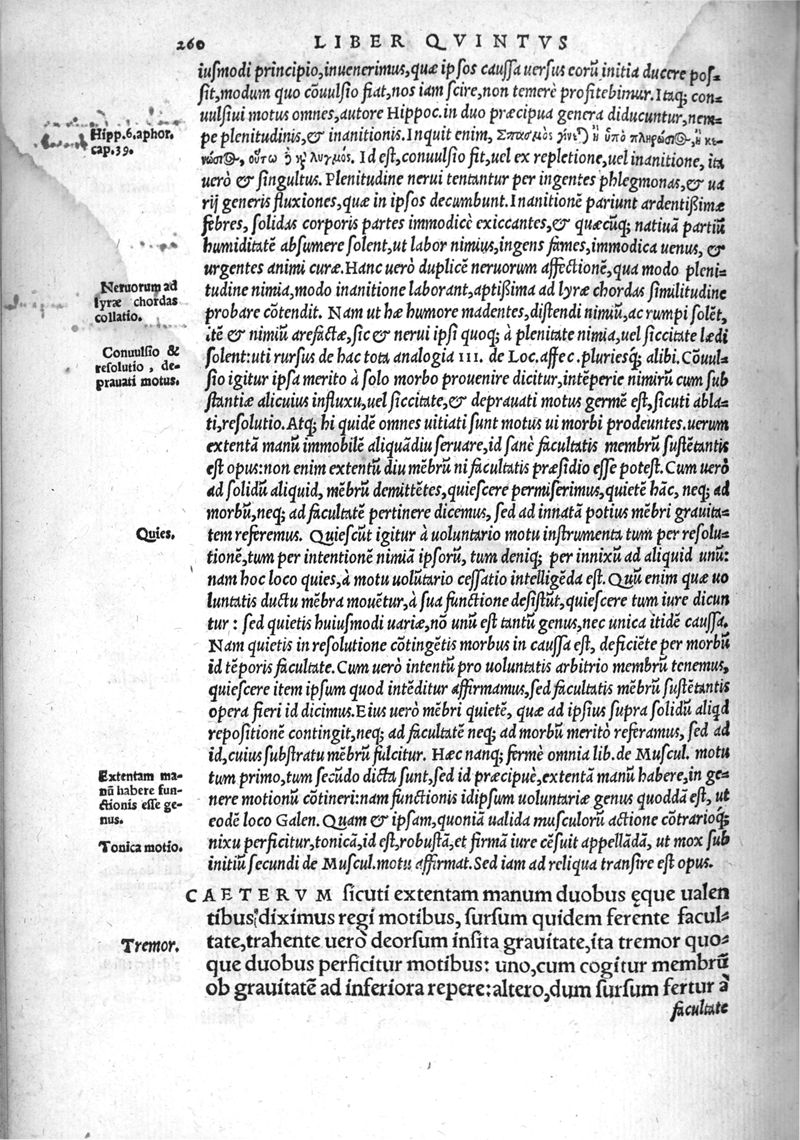 260
LIBER QVINTVS
iusmodi principio, inuenerimus, quæ ipsos caussa uersus eorū initia ducere pos-
sit, modum quo cōuulsio fiat, nos iam scire, non temerè profitebimur. Itaq; con-
uulsiui motus omnes, autore Hippoc. in duo præcipua genera diducuntur, nem-
Hipp. 6. aphor.
cap. 39.
pe plenitudinis, & inanitionis. Inquit enim, Σπασμὸς γίνε) ἢ ὑπὸ πληρώσι@, ἢ κε-
νώσι@, οὕτω ἢ κỳ λυγμός. Id est, conuulsio fit, uel ex repletione, uel inanitione, ita
uerò & singultus. Plenitudine nerui tentantur per ingentes phlegmonas, & ua
rij generis fluxiones, quæ in ipsos decumbunt. Inanitionē pariunt ardentißimæ
febres, solidas corporis partes immodicè exiccantes, & quæcūq; natiuā partiū
humiditatē absumere solent, ut labor nimius, ingens fames, immodica uenus, &
urgentes animi curæ. Hanc uerò duplicē neruorum affectionē, qua modo pleni-
Neruorum ad
lyræ chordas
collatio.
tudine nimia, modo inanitione laborant, aptißima ad lyræ chordas similitudine
probare cōtendit. Nam ut hæ humore madentes, distendi nimiū, ac rumpi solēt,
itē & nimiū arefactæ, sic & nerui ipsi quoq; à plenitate nimia, uel siccitate lædi
Conuulsio &
resolutio, de-
prauati motus.
solent: uti rursus de hac tota analogia III. de Loc. affec. pluriesq́; alibi. Cōuul-
sio igitur ipsa merito à solo morbo prouenire dicitur, intēperie nimirū cum sub
stantiæ alicuius influxu, uel siccitate, & deprauati motus germē est, sicuti abla-
ti, resolutio. Atq; hi quidē omnes uitiati sunt motus ui morbi prodeuntes. uerum
extentā manū immobilē aliquādiu seruare, id sanè facultatis membrū sustētantis
est opus: non enim extentū diu mēbrū ni facultatis præsidio esse potest. Cum uerò
ad solidū aliquid, mēbrū demittētes, quiescere permiserimus, quietē hāc, neq; ad
morbū, neq; ad facultatē pertinere dicemus, sed ad innatā potius mēbri grauita-
Quies.
tem referemus. Quiescūt igitur à uoluntario motu instrumenta tum per resolu-
tionē, tum per intentionē nimiā ipsorū, tum deniq; per innixū ad aliquid unū:
nam hoc loco quies, à motu uolūtario cessatio intelligēda est. Quū enim quæ uo
luntatis ductu mēbra mouētur, à sua functione desistūt, quiescere tum iure dicun
tur: sed quietis huiusmodi uariæ, nō unū est tantū genus, nec unica itidē caussa.
Nam quietis in resolutione cōtingētis morbus in caussa est, deficiēte per morbū
id tēporis facultate. Cum uerò intentū pro uoluntatis arbitrio membrū tenemus,
quiescere item ipsum quod intēditur affirmamus, sed facultatis mēbrū sustētantis
opera fieri id dicimus. Eius uerò mēbri quietē, quæ ad ipsius supra solidū aliqd
repositionē contingit, neq; ad facultatē neq; ad morbū meritò referamus, sed ad
id, cuius substratu mēbrū fulcitur. Hæc nanq; fermè omnia lib. de Muscul. motu
Extentam ma-
nū habere fun-
ctionis esse ge-
nus.
tum primo, tum secūdo dicta sunt, sed id præcipuè, extentā manū habere, in ge-
nere motionū cōtineri: nam functionis idipsum uoluntariæ genus quoddā est, ut
eodē loco Galen. Quam & ipsam, quoniā ualida musculorū actione cōtrarioq́;
Tonica motio.
nixu perficitur, tonicā, id est, robustā, et firmā iure cēsuit appellādā, ut mox sub
initiū secundi de Muscul. motu affirmat. Sed iam ad reliqua transire est opus.
CAETERVM sicuti extentam manum duobus ęque ualen
tibus diximus regi motibus, sursum quidem ferente facul-
Tremor.
tate, trahente uerò deorsum insita grauitate, ita tremor quo-
que duobus perficitur motibus: uno, cum cogitur membrū
ob grauitatē ad inferiora repere: altero, dum sursum fertur à
facultate